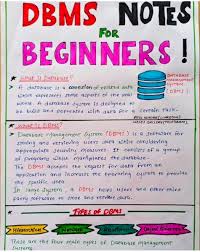 DBMS NOTES
FOR
BEGINNERS!
What is Database?
DATABASE
MANAGEMENT
SYSTEM
(DBMS)
A database is a collection of related data
which represents some aspects of the real
world. A database system is designed to
be built and populated with data for a certain task.
What is DBMS?
Database Management System (DBMS) is a software for
storing and retrieving users data while considering
appropriate security measures. It consists of a group
of programs which manipulates the database.
The DBMS accepts the request for data from an
application and instructs the operating system to provide
the specific data.
In large system, a DBMS helps users and other third
party software to store and retrieve data.
TYPES OF DBMS
Hierarchical
Network
Relational
Object Oriented
These are the four main types of Database Management
System